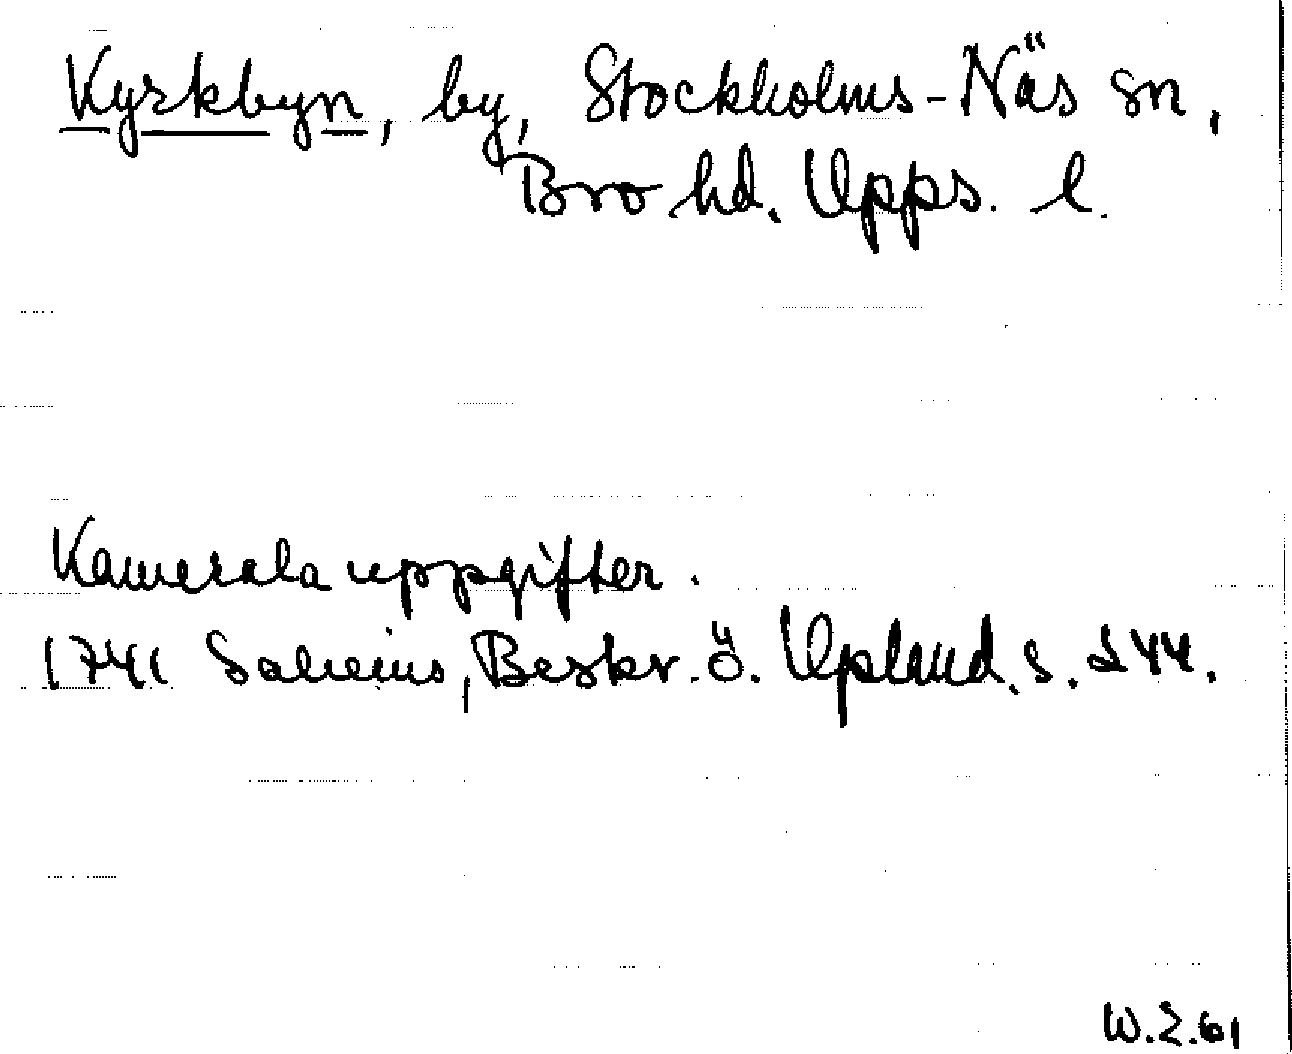 Kyrkbyn, by, Stockholms-Näs sn,
Bro hd. Upps. l.
Kamerala uppgifter.
1741 Salvius, Beskr. ö. Upland. s. 244.
W.Z.61